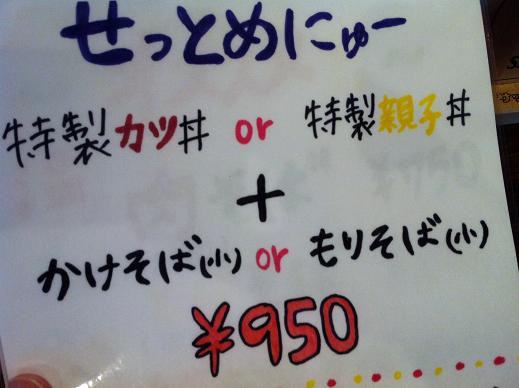 せっとめにゅー
特製カツ丼 or 特製親子丼
+
かけそば(小) or もりそば(小)
¥950